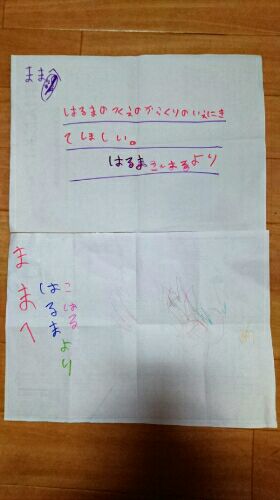 ままへ
はるまのつくえのからくりのいえにき
てほしい。
はるま こはるより
ままへ
こはる
はるまより